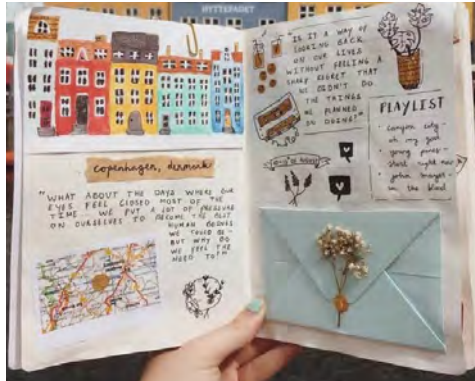 HYTTEFADET
copenhagen, denmark
"WHAT ABOUT THE DAYS WHERE OUR
EYES FEEL CLOSED MOST OF THE
TIME... WE PUT A LOT OF PRESSURE
ON OURSELVES TO BECOME THE BEST
HUMAN BEINGS
WE COULD BE -
BUT WHY DO
WE FEEL THE
NEED TO?"
"IS IT A WAY OF
LOOKING BACK
ON OUR LIVES
WITHOUT FEELING A
SHARP REGRET THAT
WE DIDN'T DO
THE THINGS
WE PLANNED
ON DOING?"
PLAYLIST
- canyon city -
oh my god
- young pines -
start right now
- john mayer -
in the blood